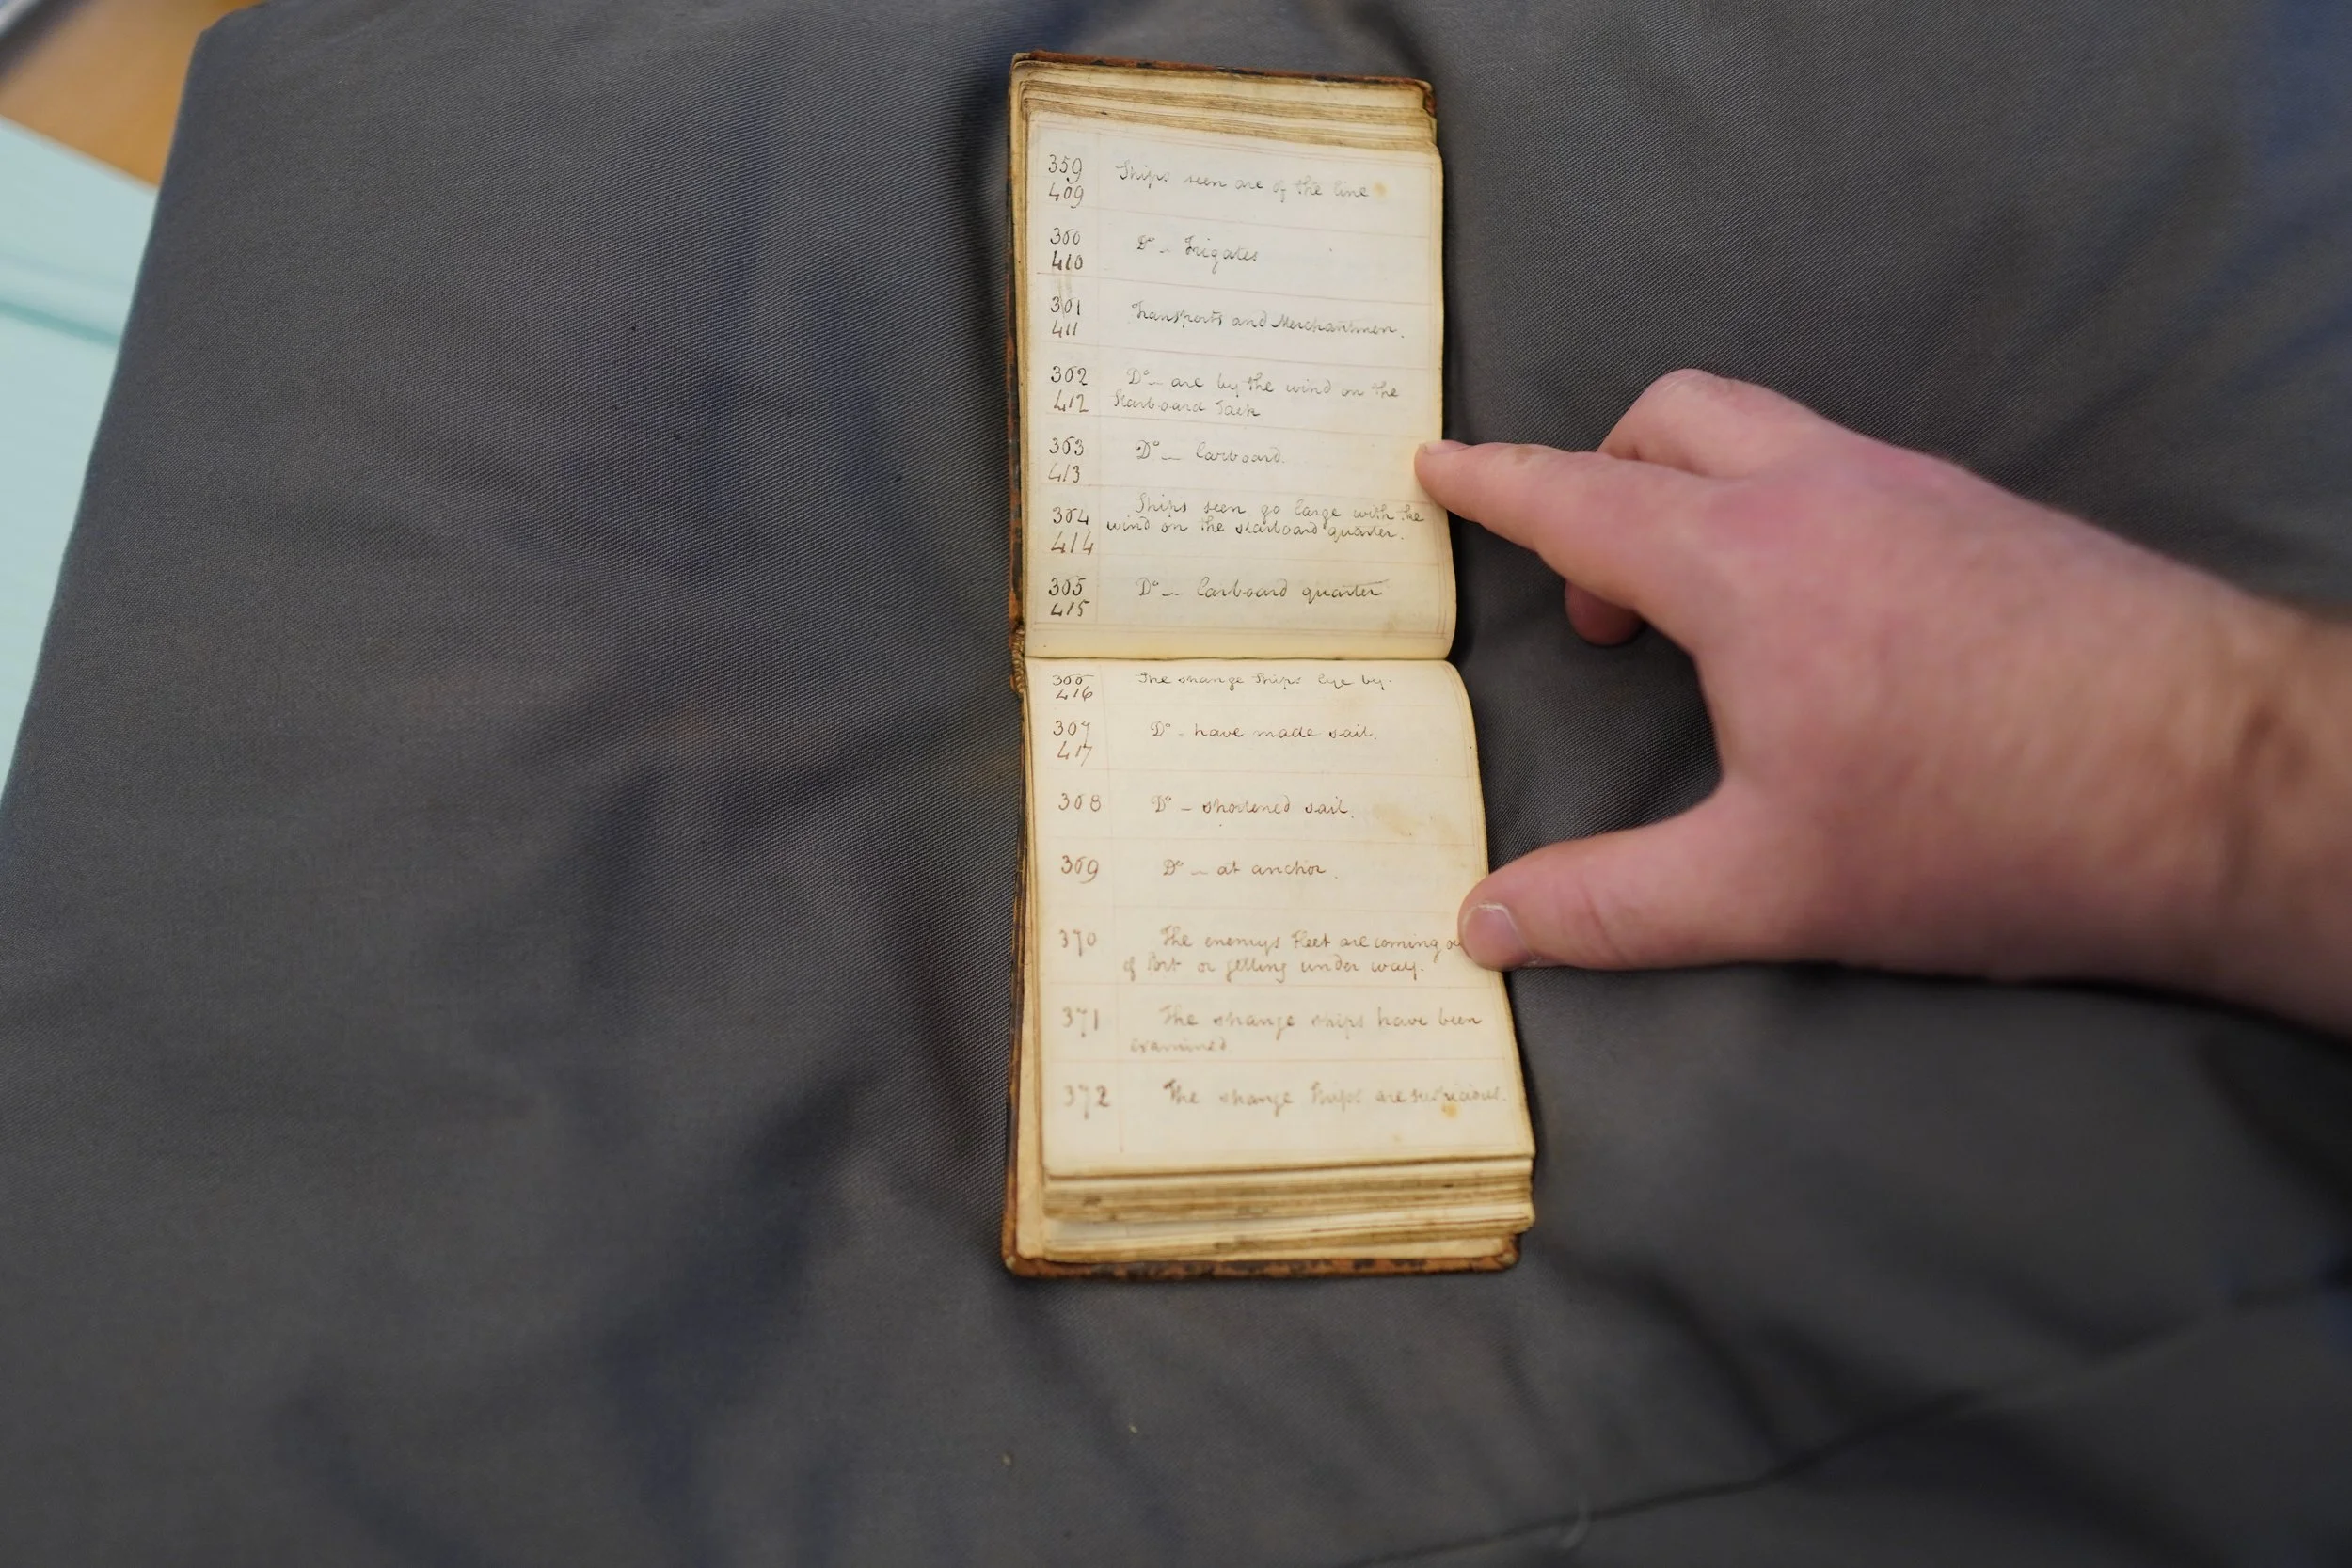 359 Ships seen are of the line
409
360 Do - Frigates
410
361 Transports and Merchantmen.
411
362 Do - are by the wind on the
412 Starboard Tack
363 Do - Larboard.
413
Ships seen go large with the
364 wind on the starboard quarter.
414
365 Do - Larboard quarter
415
366 The strange Ships lye by.
416
367 Do - have made sail.
417
368 Do - shortened sail.
369 Do - at anchor.
370 The enemys Fleet are coming
of Port or getting under way.
371 The strange ships have been
examined.
372 The strange Ships are suspicious.